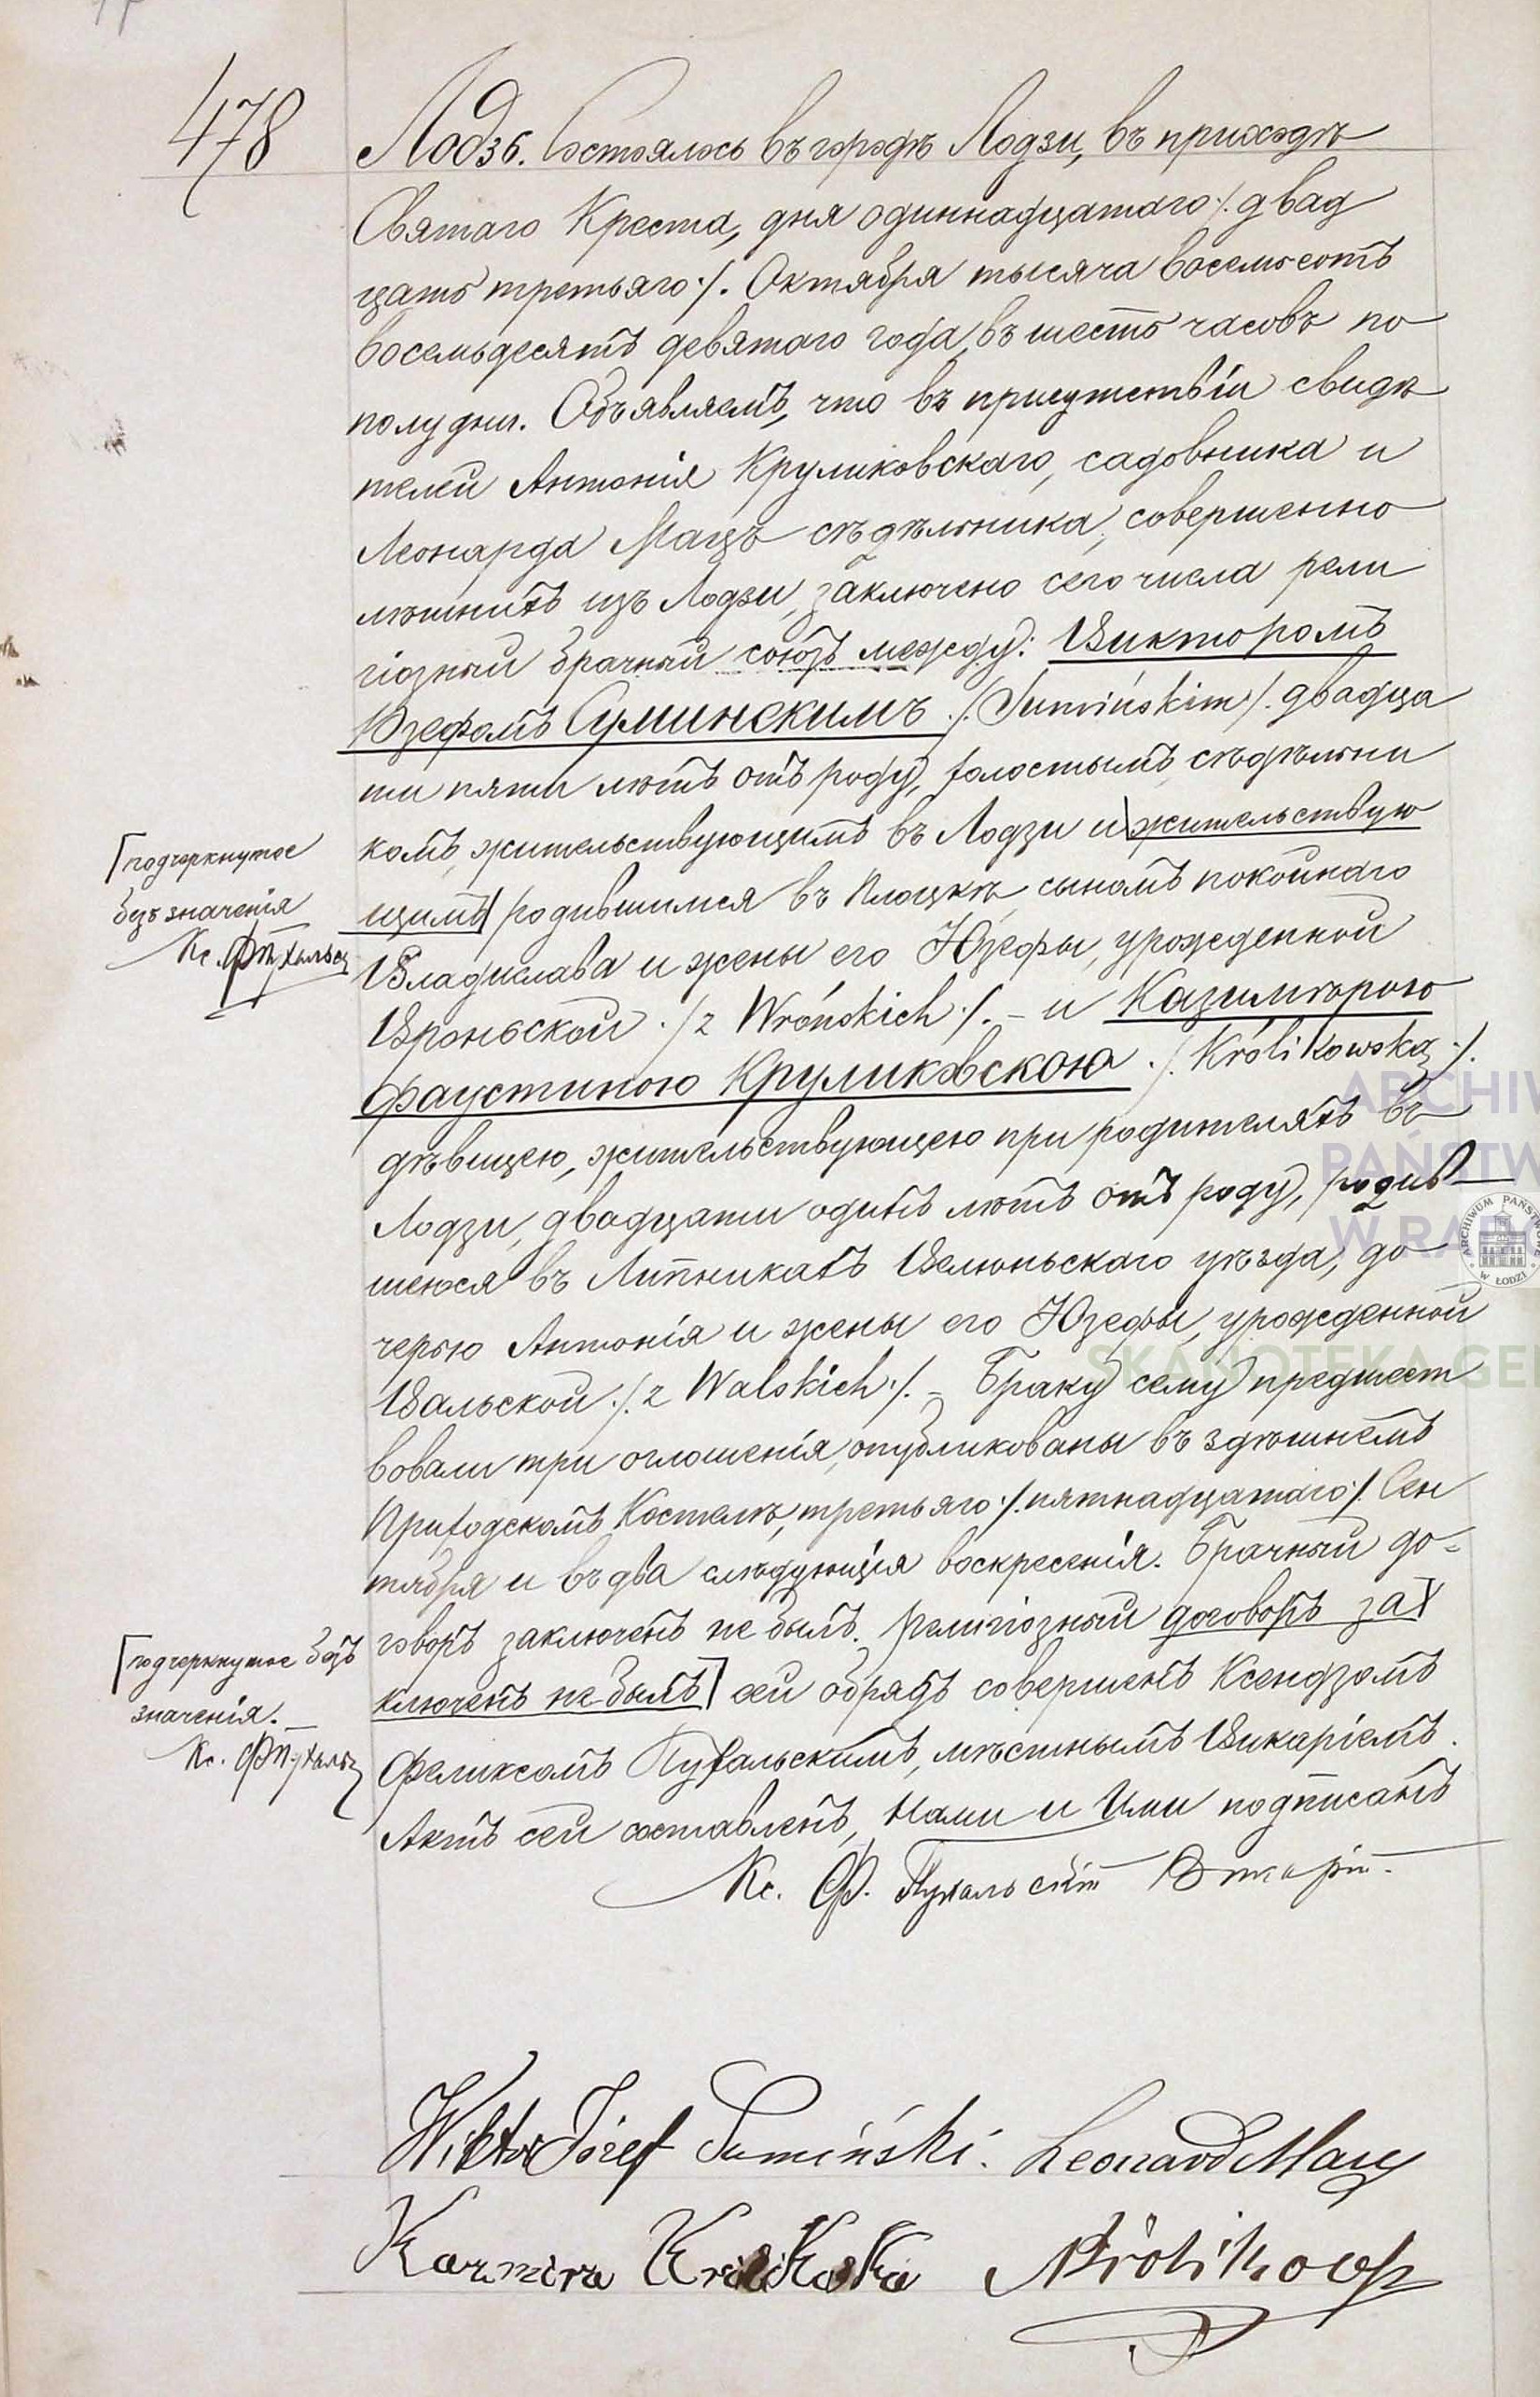 478
Лодзь. Состоялось въ городѣ Лодзи, въ приходѣ
Святаго Креста, дня одиннадцатаго ./. двад
цать третьяго ./. Октября тысяча восемьсотъ
восемьдесятъ девятаго года, въ шесть часовъ по
полудни. Объявляемъ, что въ присутствіи свидѣ
телей Антонія Круликовскаго, садовника и
Леонарда Мацъ сѣдѣльника, совершенно
лѣтнихъ изъ Лодзи, заключено сего числа рели
гіозный брачный союзъ между: Викторомъ
Юзефомъ Суминскимъ ./. Sumińskim ./. двадца
ти пяти лѣтъ отъ роду, холостымъ, сѣдѣльни
комъ, жительствующимъ въ Лодзи и жительствую
щимъ родившимся въ Плоцкѣ, сыномъ покойнаго
Владислава и жены его Юзефы, урожденной
Вроньской ./. z Wrońskich ./. – и Казимѣрою
Фаустиною Круликовскою ./. Królikowską ./.
дѣвицею, жительствующею при родителяхъ въ
Лодзи, двадцати одинъ лѣтъ отъ роду, родив
шеюся въ Липникахъ Велюньскаго уѣзда, до
черью Антонія и жены его Юзефы, урожденной
Вальской ./. z Walskich ./. – Браку сему предшест
вовали три оглошенія, опубликованы въ здѣшнемъ
Приходскомъ Костелѣ, третьяго ./. пятнадцатаго ./. Сен
тября и въ два слѣдующія воскресенія. Брачный до-
говоръ заключенъ не былъ. Религіозный договоръ за
ключенъ не былъ сей обрядъ совершенъ Ксендзомъ
Феликсомъ Пухальскимъ, мѣстнымъ Викаріемъ.
Актъ сей составленъ, Нами и Ими подписанъ
Кс. Ф. Пухальскій Викарій.
подчеркнутое
безъ значенія
Кс. Ф Пухальск
подчеркнутое безъ
значенія. –
Кс. Ф Пухальск
Wiktor Józef Sumiński. Leonard Mac
Kazmira Królikoska AKrólikowsk
ARCHIW
PAŃSTW
W RA
ARCHIWUM PAŃSTWOWE W ŁODZI
SKANOTEKA GE